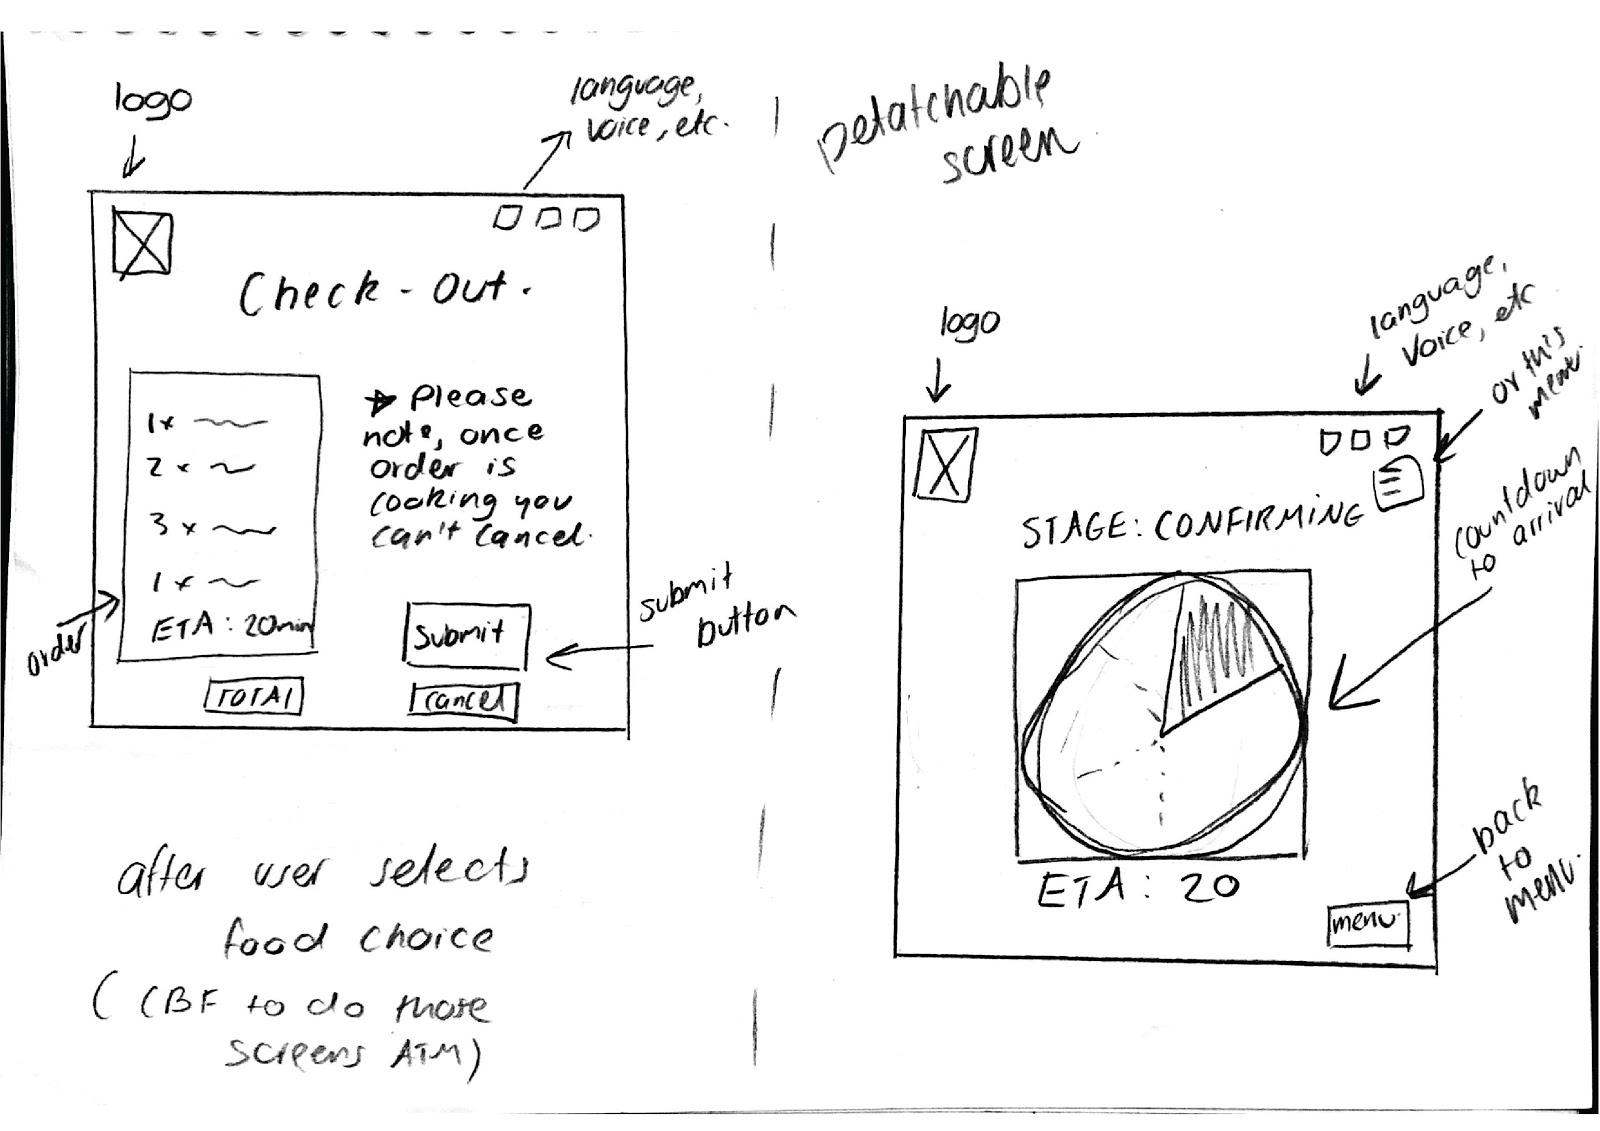 logo
language,
voice, etc.
Check-Out.
1x
2x
3x
1x
ETA: 20min
order
TOTAl
* Please
note, once
order is
cooking you
can't cancel.
Submit
cancel
submit
button
after user selects
food choice
(CBF to do those
screens ATM)
Detatchable
screen
logo
language,
Voice, etc
or this
menu.
STAGE: CONFIRMING
countdown
to arrival
ETA: 20
menu.
back
to
menu.